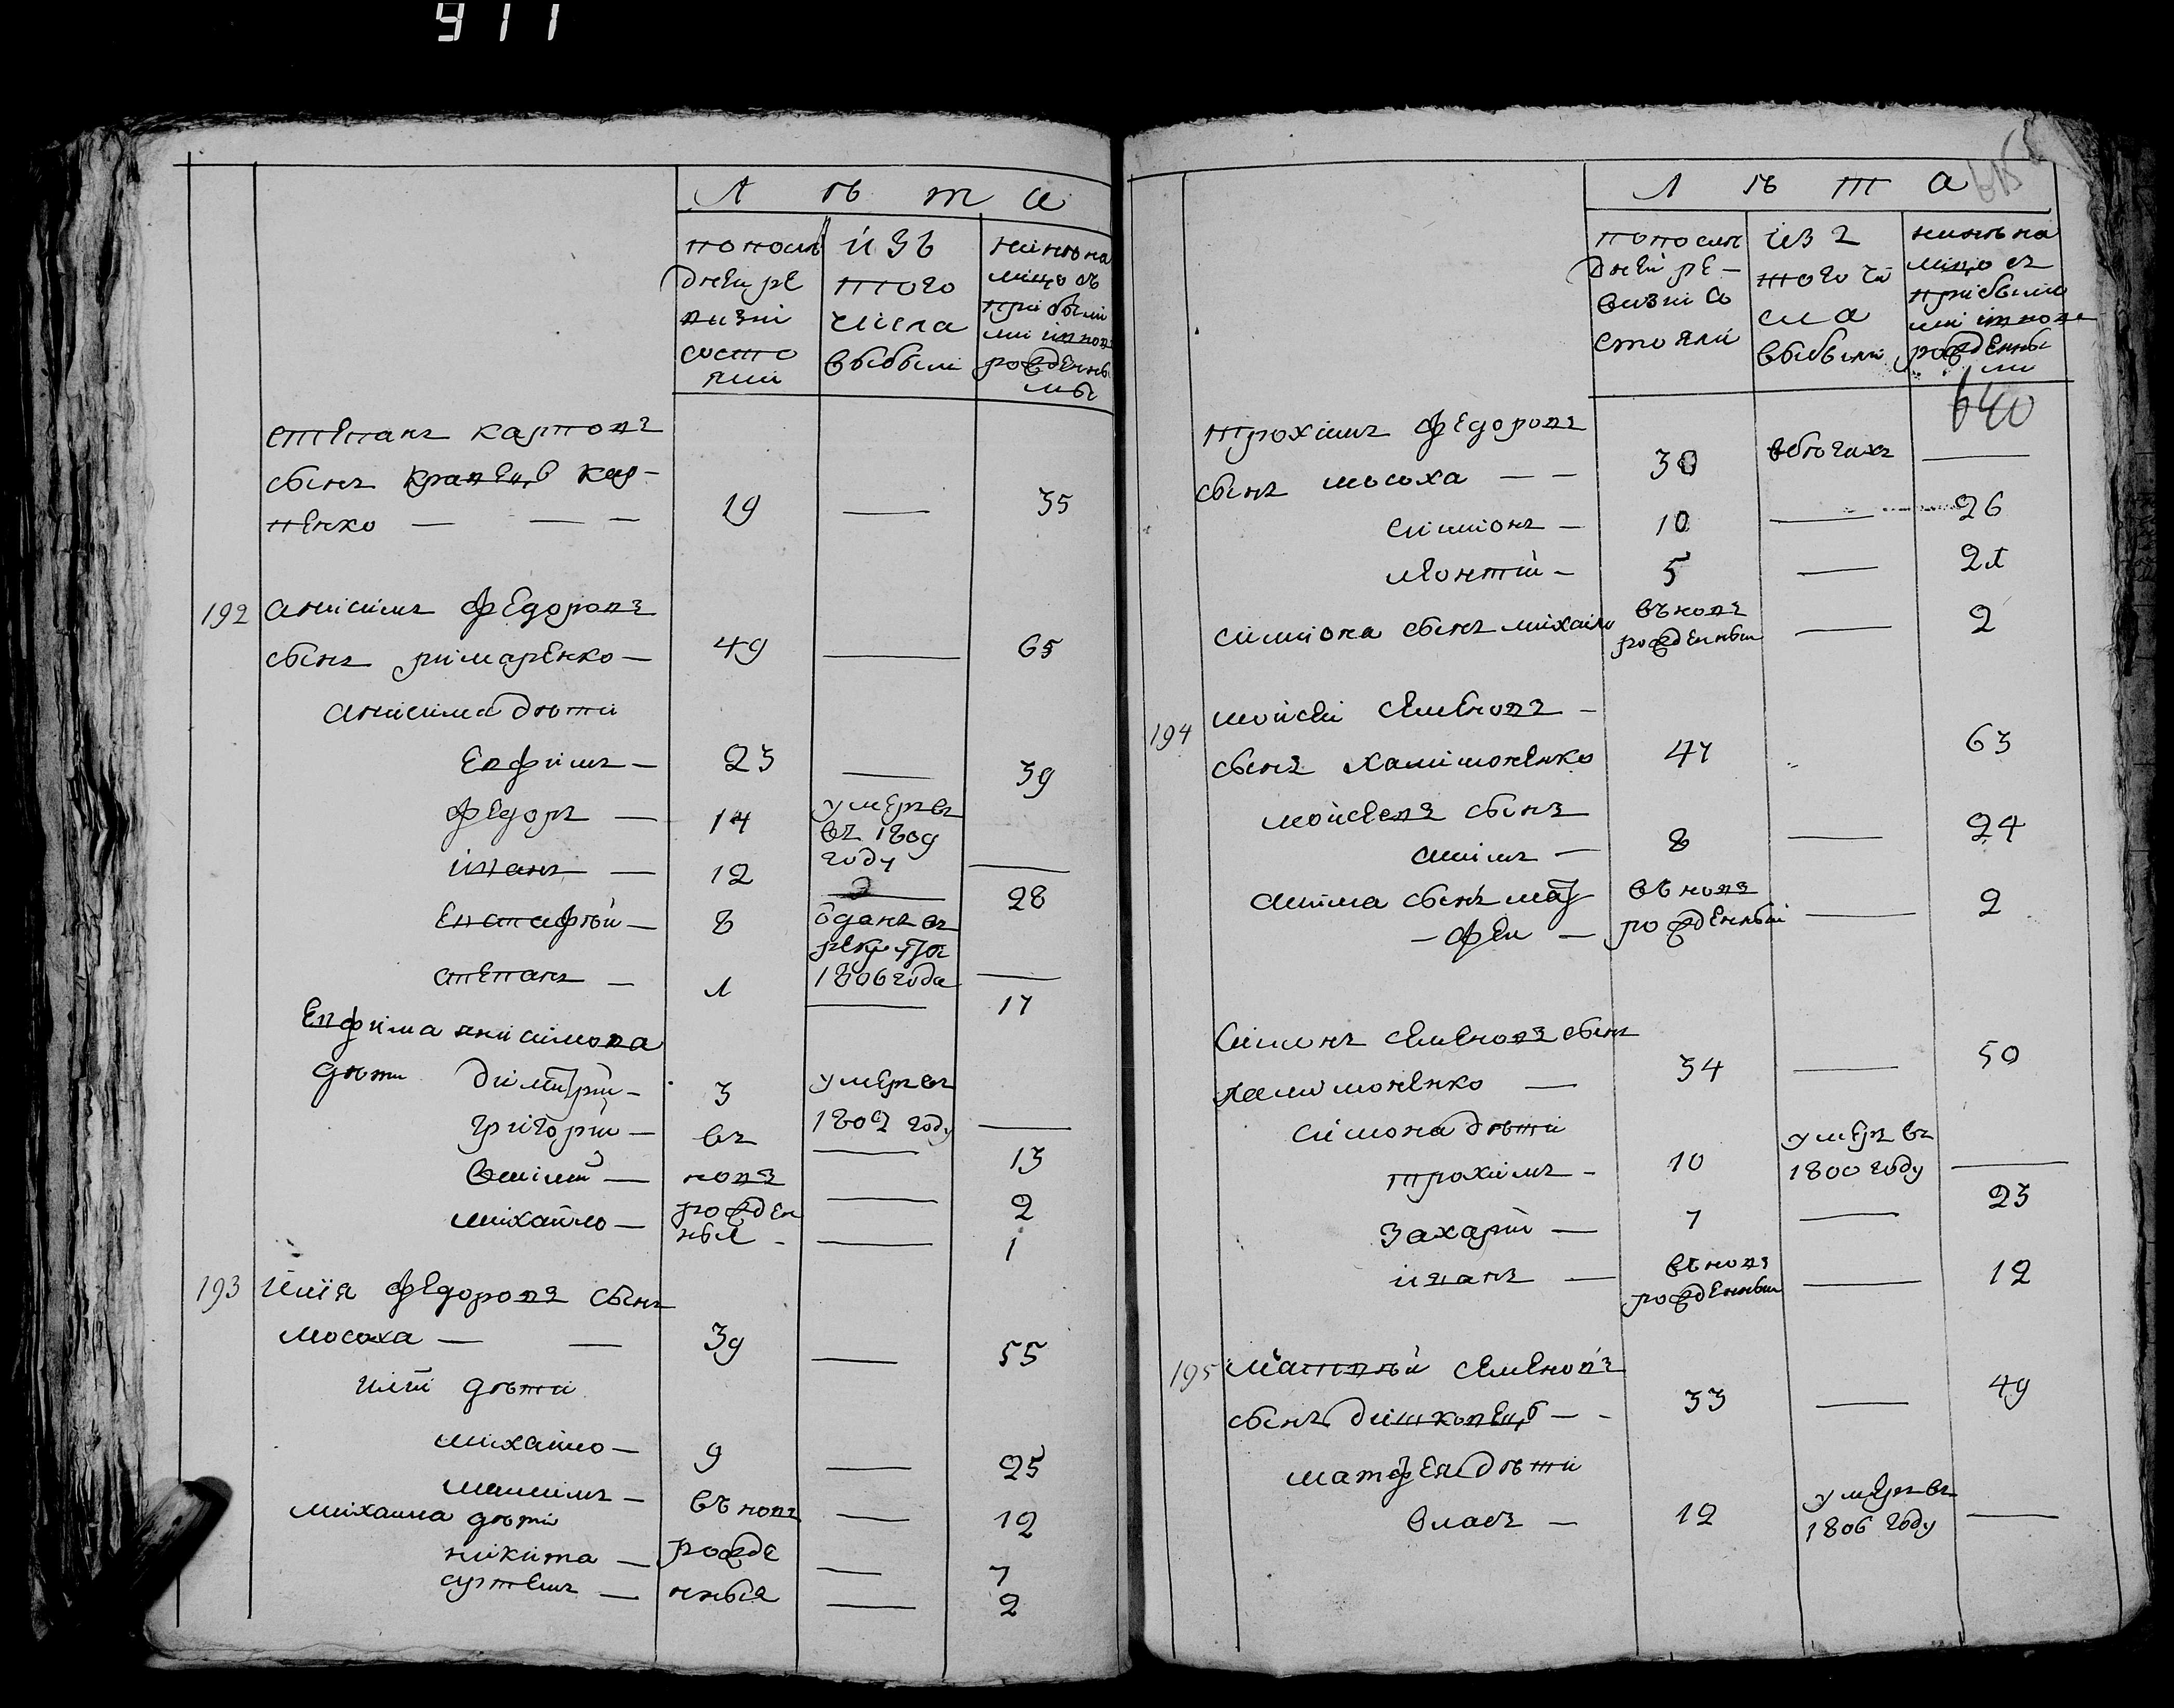 911
Л ѣ т а
по послѣ
дней ре
визіи
состо
яли
изъ
того
числа
выбыли
нинѣ на
лицо съ
прибыли
ми и новъ
рожденны
мы
степанъ карповъ
сынъ кравецъ кар-
пенко — — —
19
—
35
192
анисимъ федоровъ
сынъ римаренко —
49
—
65
анисима дѣти
Евфимъ —
23
—
39
федоръ —
14
умеръ въ
въ 1809
году
—
иванъ —
12
—
28
Евстафѣй —
8
ѿданъ въ
рекруты
1806 года
—
степанъ —
1
—
17
Евфима анисимова
дѣти димитрій —
3
умеръ въ
1802 году
—
григорій —
въ
—
13
василій —
новѣ
—
2
михайло —
рожден
ныя -
—
1
193
илія федоровъ сынъ
мосоха — —
39
—
55
иліи дѣти
михайло —
9
—
25
максимъ —
въ новѣ
—
12
михаила дѣти
никита —
рожде
—
7
—
нныя
—
2
640
Л ѣ т а
по послѣ
дней ре-
визіи со
стояли
изъ
того чи
сла
выбыли
нинѣ на
лицо съ
прибыли
ми и новъ
рожденны
ми
трохимъ федоровъ
сынъ мосоха — —
30
въ бѣгахъ
—
симіонъ —
10
—
26
леонтій —
5
—
21
симіона сынъ михайло
въ новѣ
рожденный
—
2
194
мойсей семеновъ -
сынъ халимоненко
47
63
мойсеевъ сынъ
—
8
—
24
въ новѣ
рожденный
—
2
симонъ семеновъ сынъ
халимоненко —
34
—
50
симона дѣти
трохимъ -
10
умеръ въ
1800 году
—
захарій —
7
—
23
иванъ —
въ новѣ
рожденный
—
12
195
матвѣй семеновъ
сынъ — -
33
—
49
матфея дѣти
власъ —
12
умеръ въ
1806 году
—